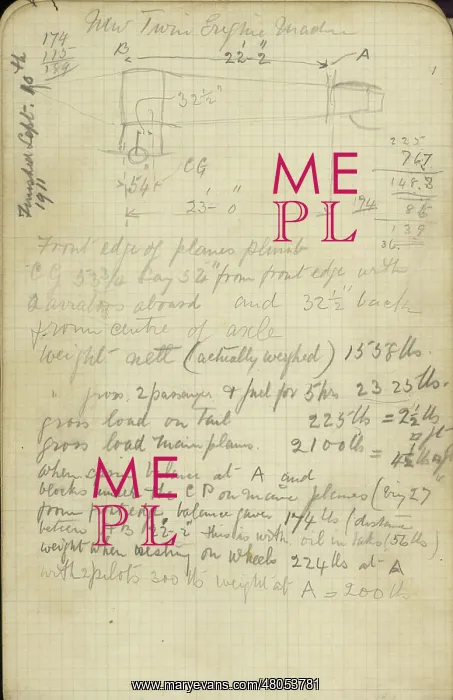 New Twin Engine Machine
174
115
189
B
22'-2"
A
1
Finished Sept. 10th
1911
32½"
CG
54"
23'-0"
194
225
767
148.3
86
139
36.
ME
PL
Front edge of planes plumb
CG 53¾ say 52" from front edge with
2 aviators aboard and 32½" back
from centre of axle
weight nett (actually weighed) 1558 lbs.
" gross. 2 passenger & fuel for 5 hrs 2325 lbs.
gross load on tail 225 lbs = 2½ lbs
gross load main planes. 2100 lbs =
when balance at A and
ME
PL
blocks under CP on main planes (
from front edge) balance gives 174 lbs (distance
between A B 22'-2" this is with oil in tanks (56 lbs)
weight when resting on wheels 224 lbs at A
with 2 pilots 300 lbs weight at A = 200 lbs
www.maryevans.com/48053781